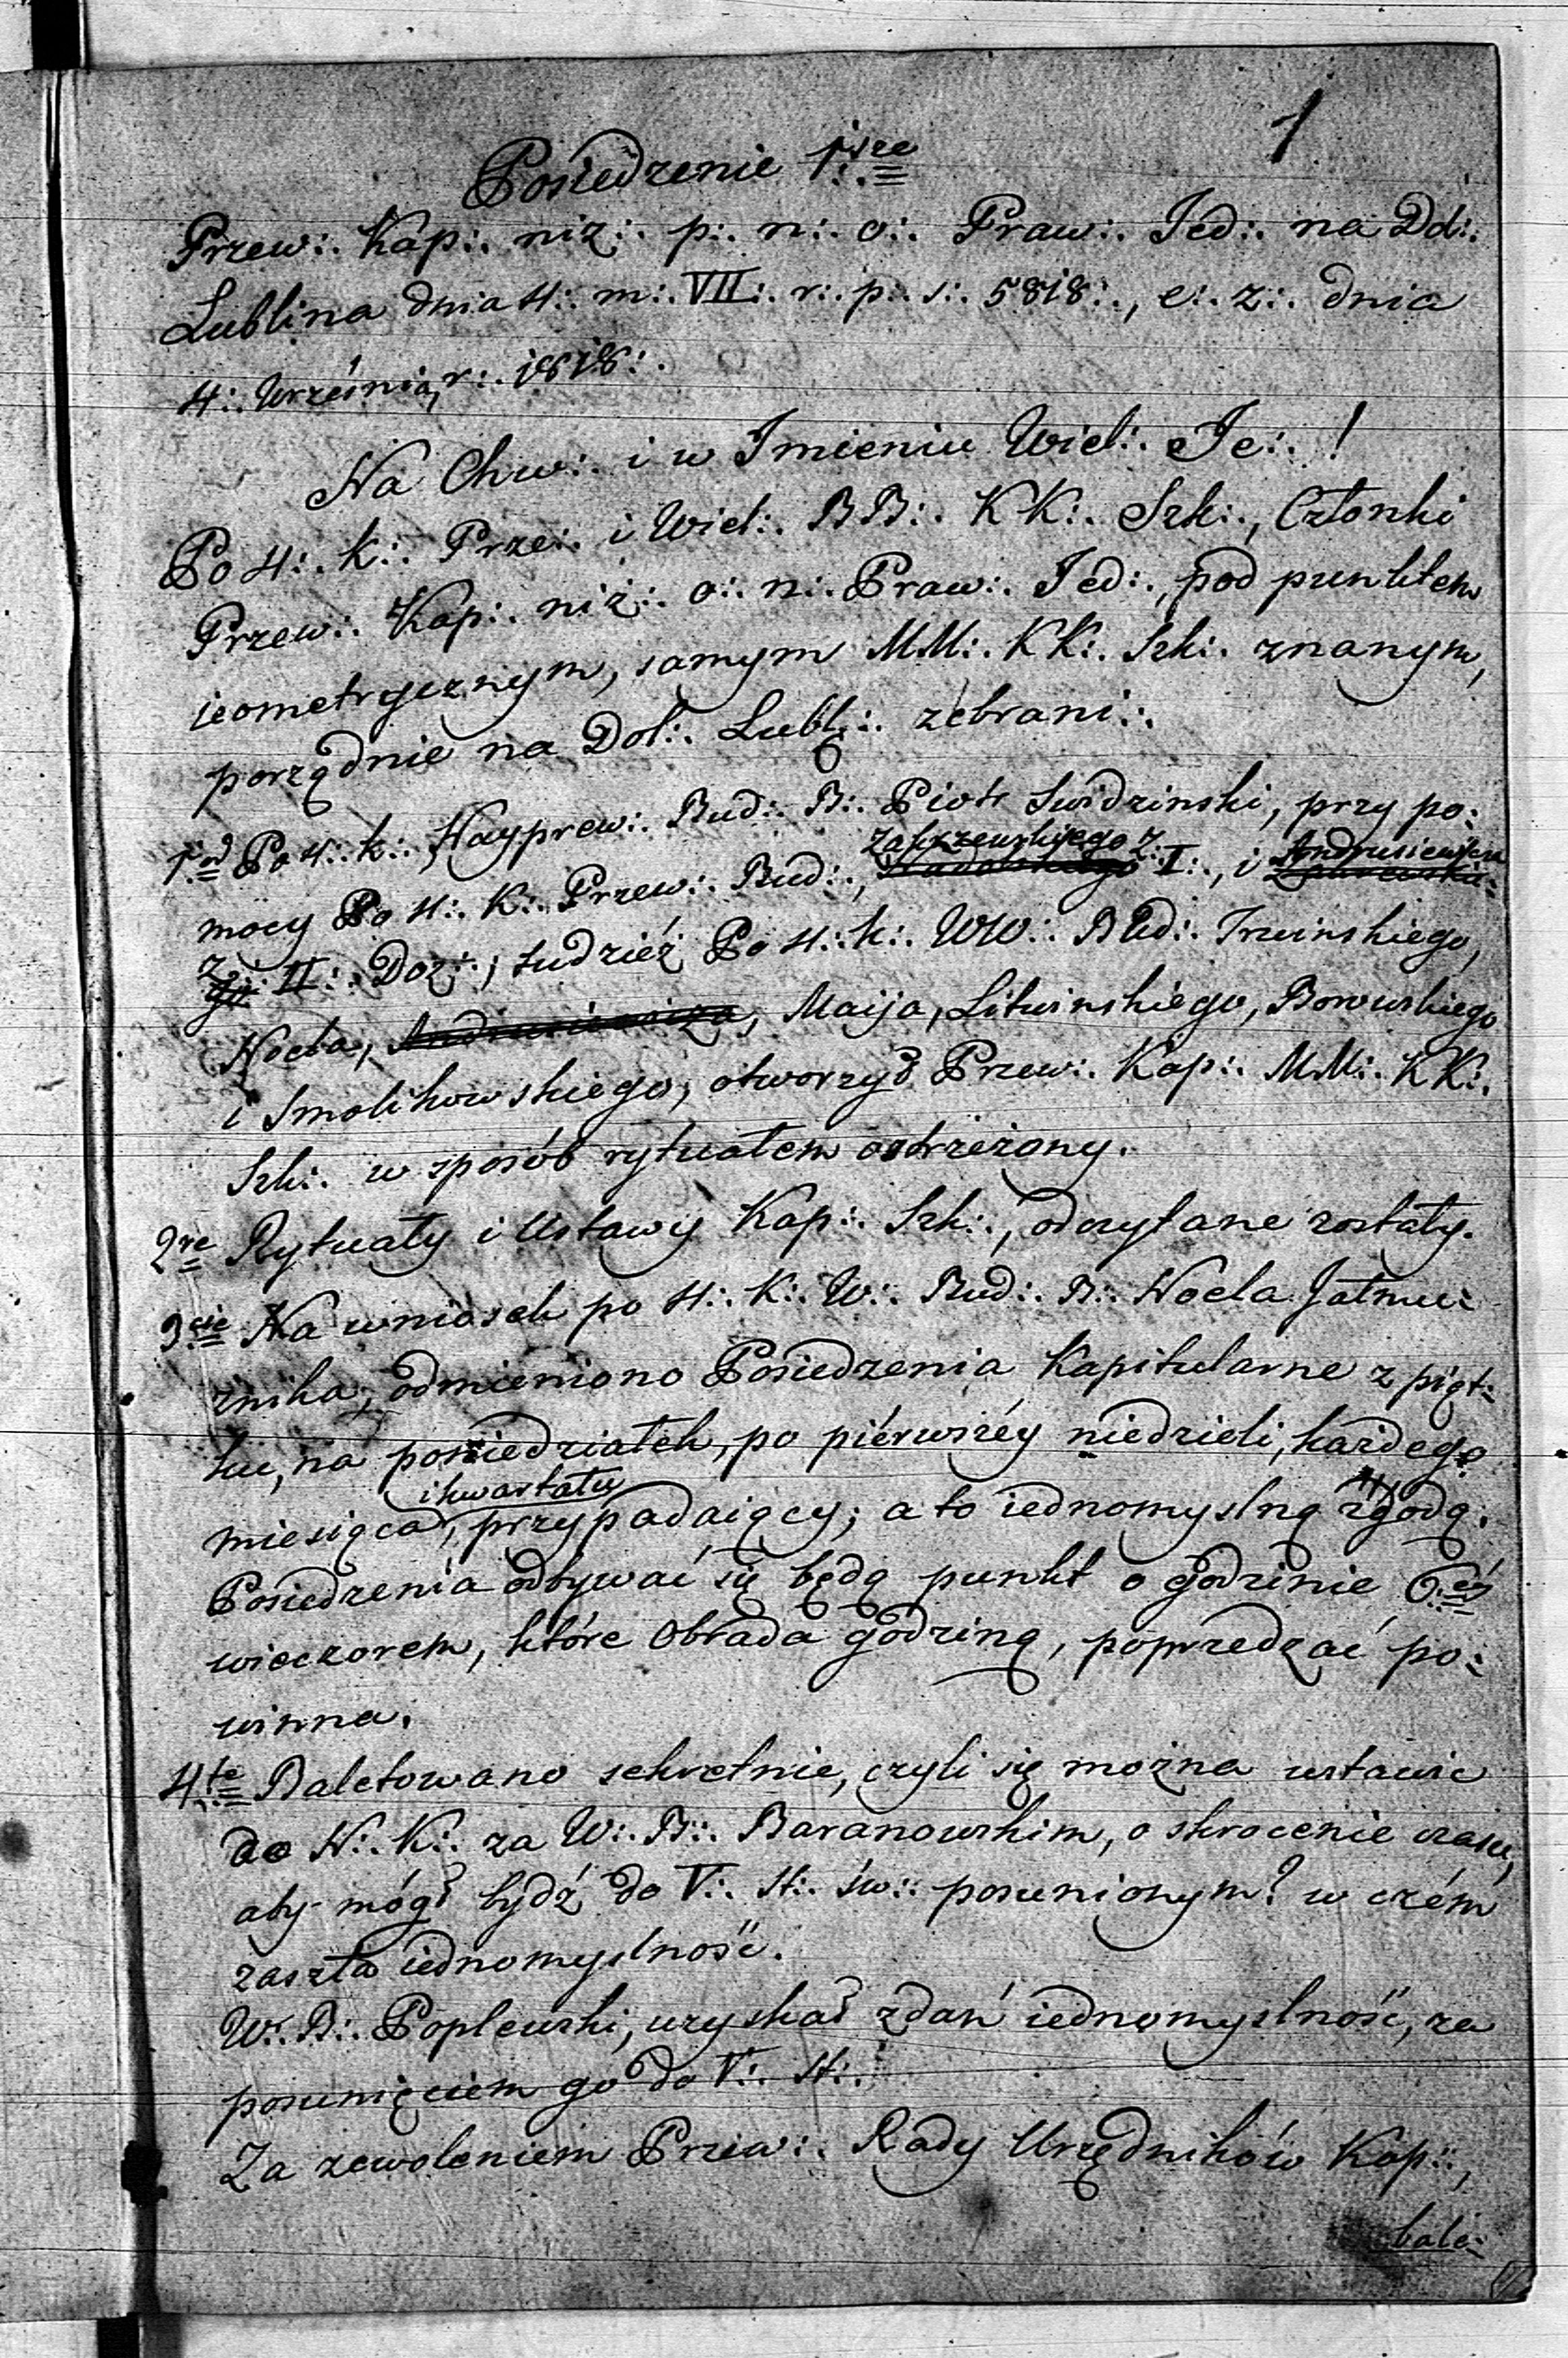 1
Posiedzenie 1:wsze
Przew:. Kap:. niż:. p:. n:. o:. Praw:. Jed:. na Dol:.
Lublina dnia 4:. m:. VII:. r:. p:. s:. 5818:., e:. z:. dnia
4:. Września, r:. 1818:.
Na Chw:. i w Imieniu Wiel:. Je:. !
Po 4:. k:. Prze:. i Wiel:. BB:. KK:. Szk:., Członki
Przew:. Kap:. niż:. o:. n:. Praw:. Jed:., pod punktem
ieometrycznym, samym MM:. KK:. Szk:. znanym,
porządnie na Dol:. Lubl:. zebrani:.
1:od Po 4:. k:. Nayprew:. Bud:. B:. Piotr Swidzinski, przy po:
Zakrzewskiego z. Andrusiewicza
mocy Po 4:. K:. Przew:. Bud:., I:., i
z II:. Doz:.; tudzież Po 4:. k:. WW:. BBud:. Irwinskiego,
Noela, Andrusiewicza, Maija, Litwinskiego, Borowskiego
i Smolikowskiego, otworzył Przew:. Kap:. MM:. KK:.
Szk:. w sposób rytuałem ostrzeżony.
2re Rytuały i Ustawy Kap:. Szk:., odczytane zostały.
3cie Na wniosek po 4:. K:. W:. Bud:. B:. Noela Jałmu:
żnika, odmieniono Posiedzenia Kapitularne z piąt:
ku, na poniedziałek, po piérwszéy niedzieli, każdego
i kwartału
miesiąca, przypadaiący; a to iednomyslną zgodą.
Posiedzenia odbywać się będą punkt o godzinie 6:éy
wieczorem, które Obrada godziną, poprzedzać po:
winna.
4:te Baletowano sekretnie, czyli się można wstawic
do N:. K:. za W:. B:. Baranowskim, o skrocenie czasu,
aby mógł bydź do V:. St:. św:. posunionym? w czém
zaszła iednomyslność.
W:. B:. Poplewski, uzyskał zdań iednomyslność, za
posunięciem go do V:. St:.
Za zewoleniem Przew:. Rady Urzędników Kap:.,
bale: